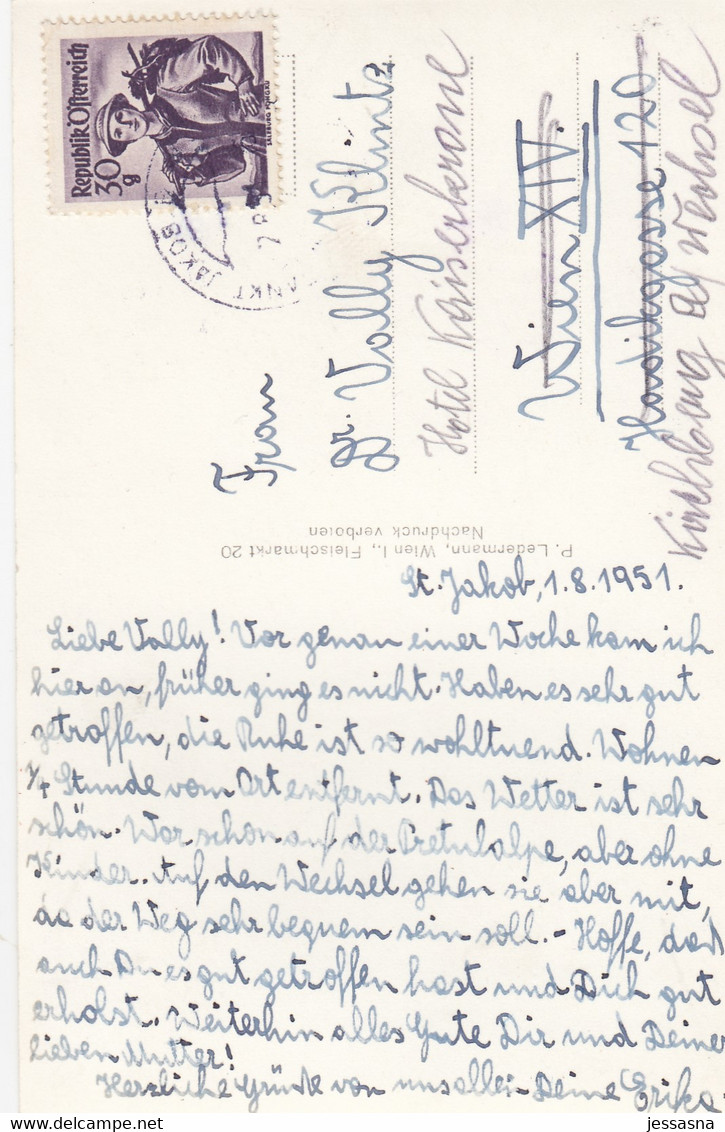 Republik Österreich
30
g
SALZBURG PONGAU
SANKT JAKOB
Frau
Dr. Vally Klintz
Hotel Kaiserkrone
Wien XIV.
Hadikgasse 120
Kirchberg a/ Wechsel
P. Ledermann, Wien I., Fleischmarkt 20
Nachdruck verboten
St. Jakob, 1.8.1951.
Liebe Vally! Vor genau einer Woche kam ich
hier an, früher ging es nicht. Haben es sehr gut
getroffen, die Ruhe ist so wohltuend. Wohnen
1/4 Stunde vom Ort entfernt. Das Wetter ist sehr
schön. War schon auf der Pretulalpe, aber ohne
Kinder. Auf den Wechsel gehen sie aber mit,
da der Weg sehr bequem sein soll. - Hoffe, daß
auch Du es gut getroffen hast und Dich gut
erholst. Weiterhin alles Gute Dir und Deiner
lieben Mutter!
Herzliche Grüße von uns allen Deine Erika.
jessasna